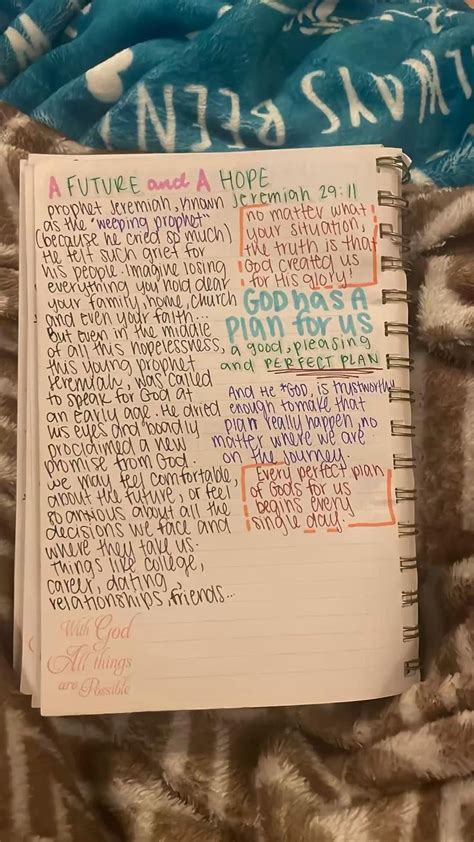 ALWAYS BEEN
A FUTURE and A HOPE
Jeremiah 29:11
prophet Jeremiah, known
as the "weeping prophet"
(because he cried so much)
He felt such grief for
his people. Imagine losing
everything you hold dear
your family, home, church
and even your faith...
But even in the middle
of all this hopelessness,
this young prophet
Jeremiah, was called
to speak for God at
an early age. He dried
his eyes and boadly
proclaimed a new
promise from God.
we may feel comfortable,
about the future, or feel
so anxious about all the
decisions we face and
where they take us.
things like college,
career, dating,
relationships, friends...
no matter what
your situation,
the truth is that
God created us
for His glory!
GOD has A
plan for us
a good, pleasing
and PERFECT PLAN
And He *GOD, is trustworthy
enough to make that
plan really happen, no
matter where we are
on the journey.
Every perfect plan
of Gods for us
begins every
single day.
With God
All things
are Possible